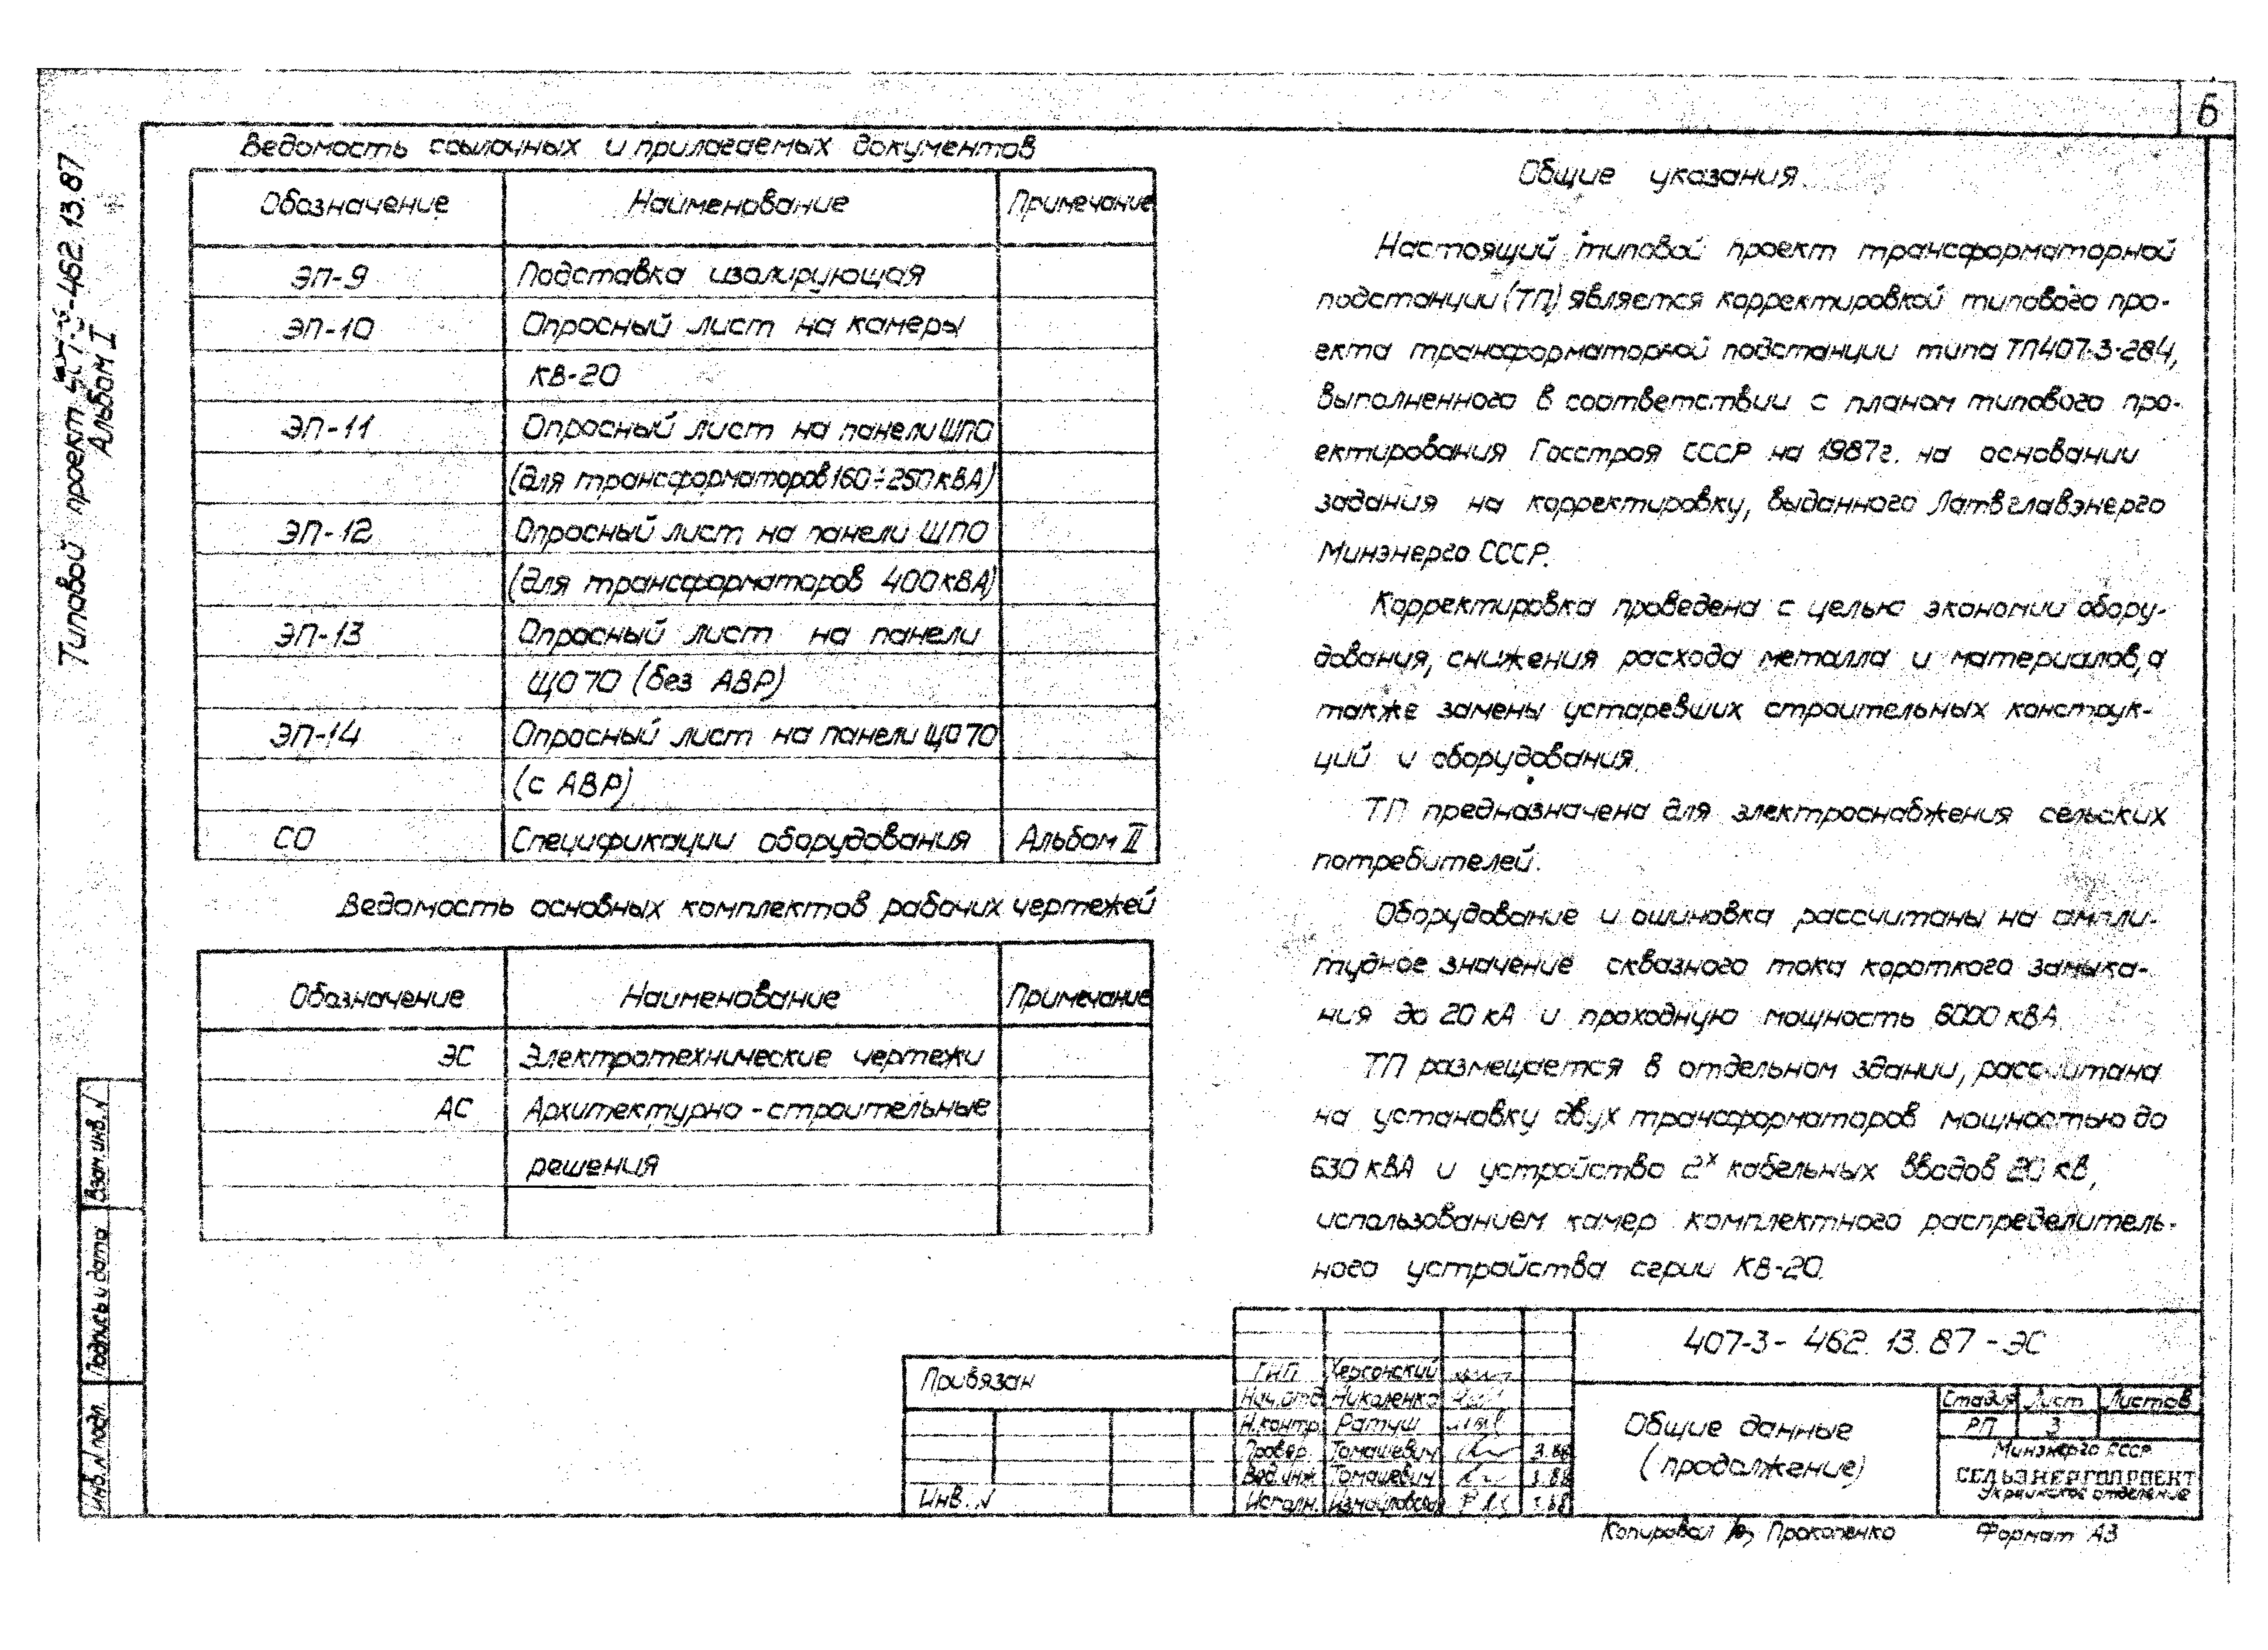 6
Типовой проект 407-3-462.13.87
Альбом I
Ведомость ссылочных и прилагаемых документов
Обозначение Наименование Примечание
ЭП-9 Подставка изолирующая
ЭП-10 Опросный лист на камеры
КВ-20
ЭП-11 Опросный лист на панели ЩПО
(для трансформаторов 160÷250 кВА)
ЭП-12 Опросный лист на панели ЩПО
(для трансформаторов 400 кВА)
ЭП-13 Опросный лист на панели
ЩО 70 (без АВР)
ЭП-14 Опросный лист на панели ЩО 70
(с АВР)
СО Спецификации оборудования Альбом II
Ведомость основных комплектов рабочих чертежей
Обозначение Наименование Примечание
ЭС Электротехнические чертежи
АС Архитектурно-строительные
решения
Общие указания.
Настоящий типовой проект трансформаторной
подстанции (ТП) является корректировкой типового про-
екта трансформаторной подстанции типа ТП407-3-284,
выполненного в соответствии с планом типового про-
ектирования Госстроя СССР на 1987г. на основании
задания на корректировку, выданного Латвглавэнерго
Минэнерго СССР.
Корректировка проведена с целью экономии обору-
дования, снижения расхода металла и материалов, а
также замены устаревших строительных конструк-
ций и оборудования.
ТП предназначена для электроснабжения сельских
потребителей.
Оборудование и ошиновка рассчитаны на ампли-
тудное значение сквозного тока короткого замыка-
ния до 20 кА и проходную мощность 6000 кВА.
ТП размещается в отдельном здании, рассчитана
на установку двух трансформаторов мощностью до
630 кВА и устройство 2х кабельных вводов 20 кв,
использованием камер комплектного распределитель-
ного устройства серии КВ-20.
Взам. инв. №
Подпись и дата
Инв. № подл.
Привязан
Инв. №
ГИП Херсонский
Нач. отд. Николенко
Н.контр. Ратуш
Провер. Томашевич 3.88
Вед. инж. Томашевич 3.88
Исполн. Измайловская 3.88
407-3-462.13.87-ЭС
Общие данные
(продолжение)
Стадия Лист Листов
РП 3
Минэнерго СССР
СЕЛЬЭНЕРГОПРОЕКТ
Украинское отделение
Копировал Прокопенко
Формат А3